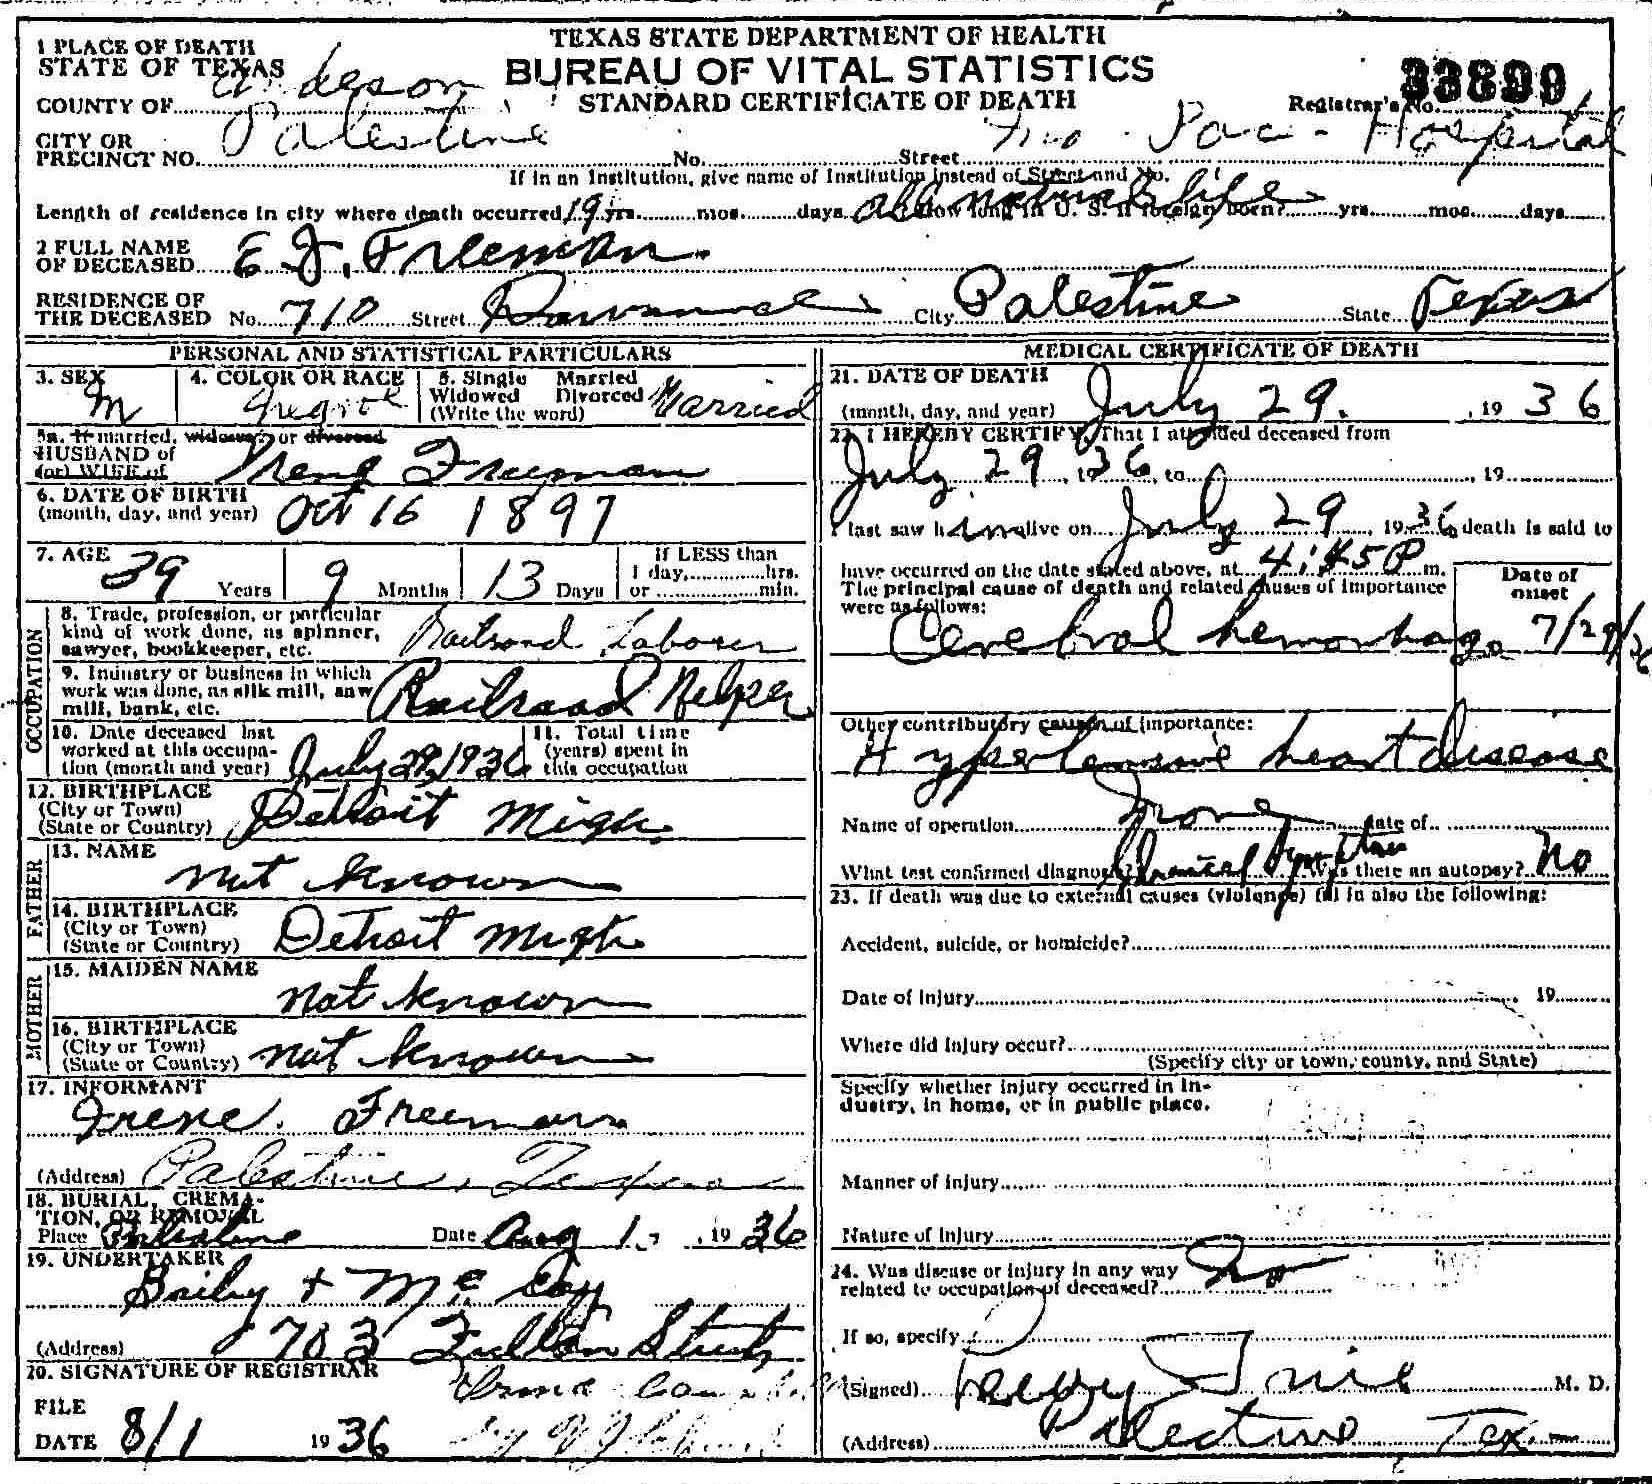 TEXAS STATE DEPARTMENT OF HEALTH
BUREAU OF VITAL STATISTICS
STANDARD CERTIFICATE OF DEATH
33899
Registrar's No.
1 PLACE OF DEATH
STATE OF TEXAS
COUNTY OF Anderson
CITY OR PRECINCT NO. Palestine No. Street Mo Pac - Hospital
If in an Institution, give name of Institution instead of Street and No.
Length of residence in city where death occurred 19 yrs. mos. days all natural life How long in U. S. if foreign born? yrs. mos. days
2 FULL NAME OF DECEASED E. J. Freeman
RESIDENCE OF THE DECEASED No. 710 Street City Palestine State Texas
PERSONAL AND STATISTICAL PARTICULARS
3. SEX M
4. COLOR OR RACE Negro
5. Single Married Widowed Divorced (Write the word) Married
5a. If married, widowed, or divorced
HUSBAND of (or) WIFE of Irene Freeman
6. DATE OF BIRTH (month, day, and year) Oct 16 1897
7. AGE 39 Years 9 Months 13 Days If LESS than 1 day, hrs. or min.
OCCUPATION
8. Trade, profession, or particular kind of work done, as spinner, sawyer, bookkeeper, etc. Railroad Laborer
9. Industry or business in which work was done, as silk mill, saw mill, bank, etc. Railroad Helper
10. Date deceased last worked at this occupation (month and year) July 29, 1936
11. Total time (years) spent in this occupation
12. BIRTHPLACE (City or Town) (State or Country) Detroit Migh.
FATHER
13. NAME Not Known
14. BIRTHPLACE (City or Town) (State or Country) Detroit Migh
MOTHER
15. MAIDEN NAME Not Known
16. BIRTHPLACE (City or Town) (State or Country) Not Known
17. INFORMANT
Irene Freeman
(Address) Palestine, Texas
18. BURIAL, CREMATION, OR REMOVAL
Place Palestine Date Aug 1. , 1936
19. UNDERTAKER
Baily + McCoy
(Address) 703 Fulton Street
20. SIGNATURE OF REGISTRAR
FILE DATE 8/1 1936
MEDICAL CERTIFICATE OF DEATH
21. DATE OF DEATH
(month, day, and year) July 29. , 1936
22. I HEREBY CERTIFY, That I attended deceased from
July 29, 1936, to , 19
I last saw him alive on July 29, 1936 death is said to
have occurred on the date stated above, at 4:45 P m.
The principal cause of death and related causes of importance were as follows:
Date of onset
Cerebral hemorrhage 7/29/36
Other contributory causes of importance:
Hypertensive heart disease
Name of operation None date of
What test confirmed diagnosis? Was there an autopsy? No
23. If death was due to external causes (violence) fill in also the following:
Accident, suicide, or homicide?
Date of injury , 19
Where did injury occur?
(Specify city or town, county, and State)
Specify whether injury occurred in industry, in home, or in public place.
Manner of injury
Nature of injury
24. Was disease or injury in any way related to occupation of deceased? No
If so, specify
(Signed) M. D.
(Address) Palestine, Tex.